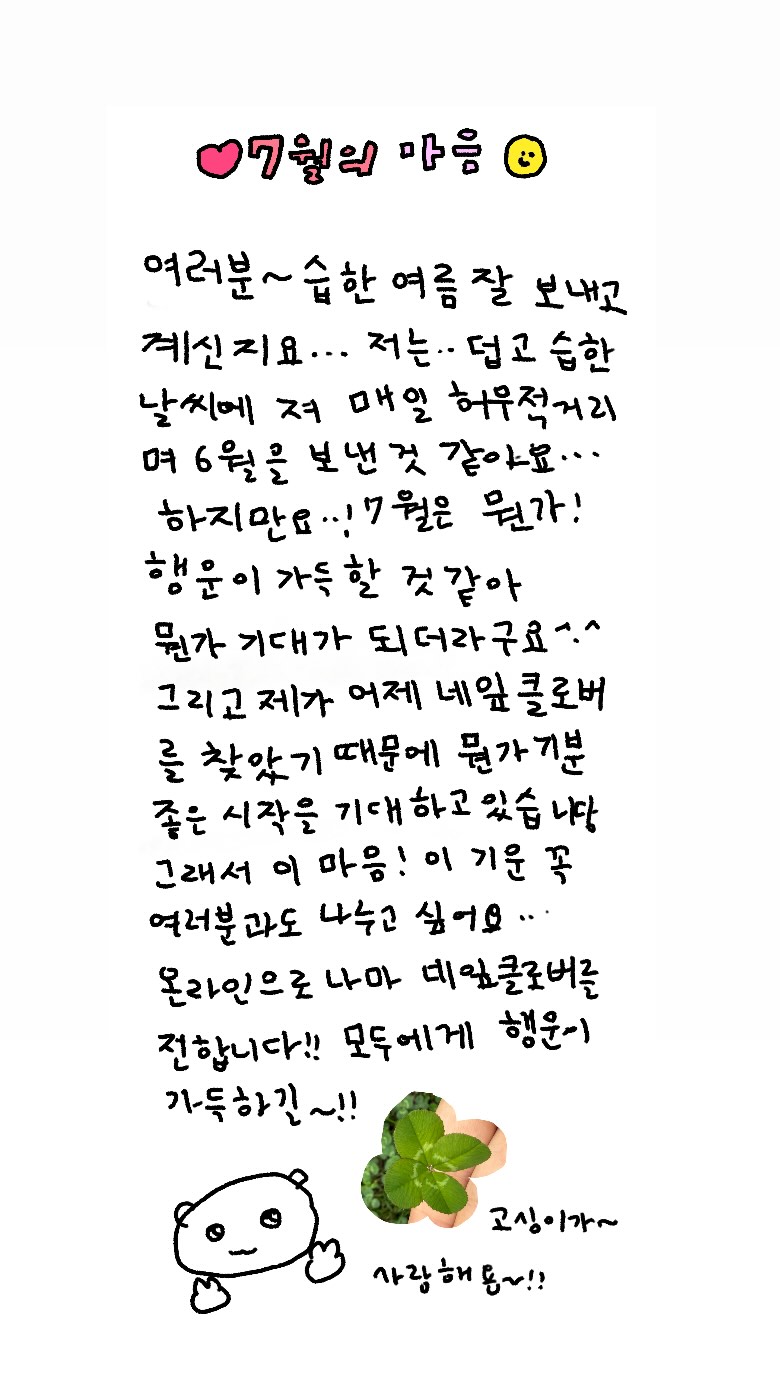 7월의 마음
여러분~ 습한 여름 잘 보내고
계신지요... 저는.. 덥고 습한
날씨에 져 매일 허우적거리
며 6월을 보낸 것 같아요...
하지만요..! 7월은 뭔가!
행운이 가득할 것 같아
뭔가 기대가 되더라구요^.^
그리고 제가 어제 네잎클로버
를 찾았기 때문에 뭔가 기분
좋은 시작을 기대하고 있습니당
그래서 이 마음! 이 기운 꼭
여러분과도 나누고 싶어요...
온라인으로 나마 네잎클로버를
전합니다!! 모두에게 행운이
가득하길~!!
고싱이가~
사랑해용~!!